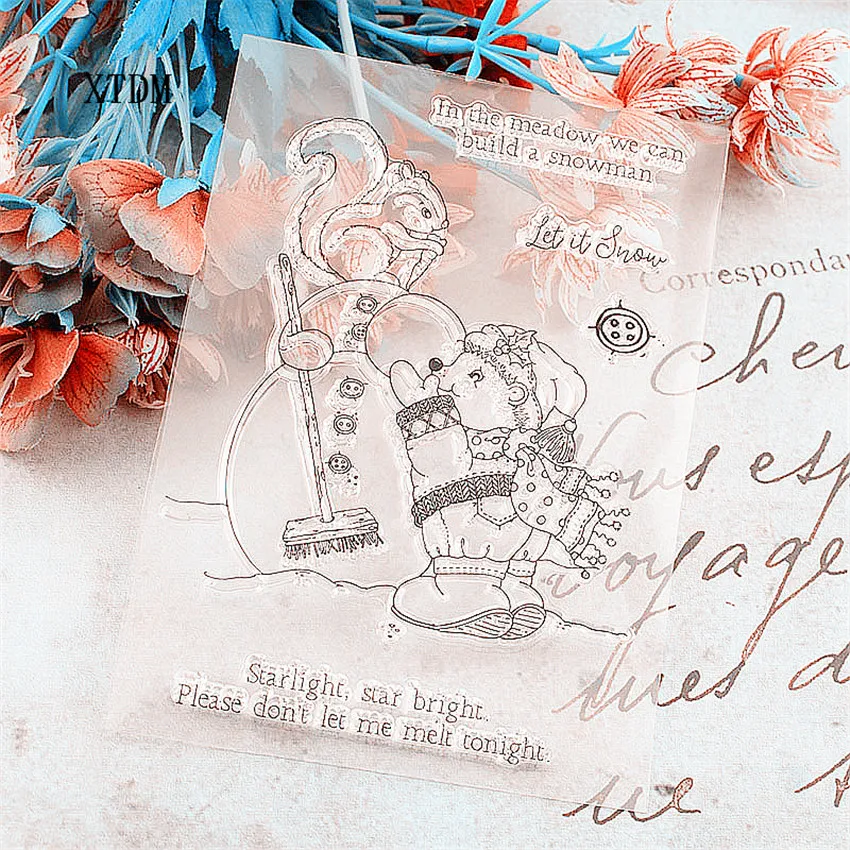 XTDM
In the meadow we can
build a snowman
Let it Snow
Correspondan
Cher
Vous esp
voyage
ues d
ue
Starlight, star bright.
Please don't let me melt tonight.